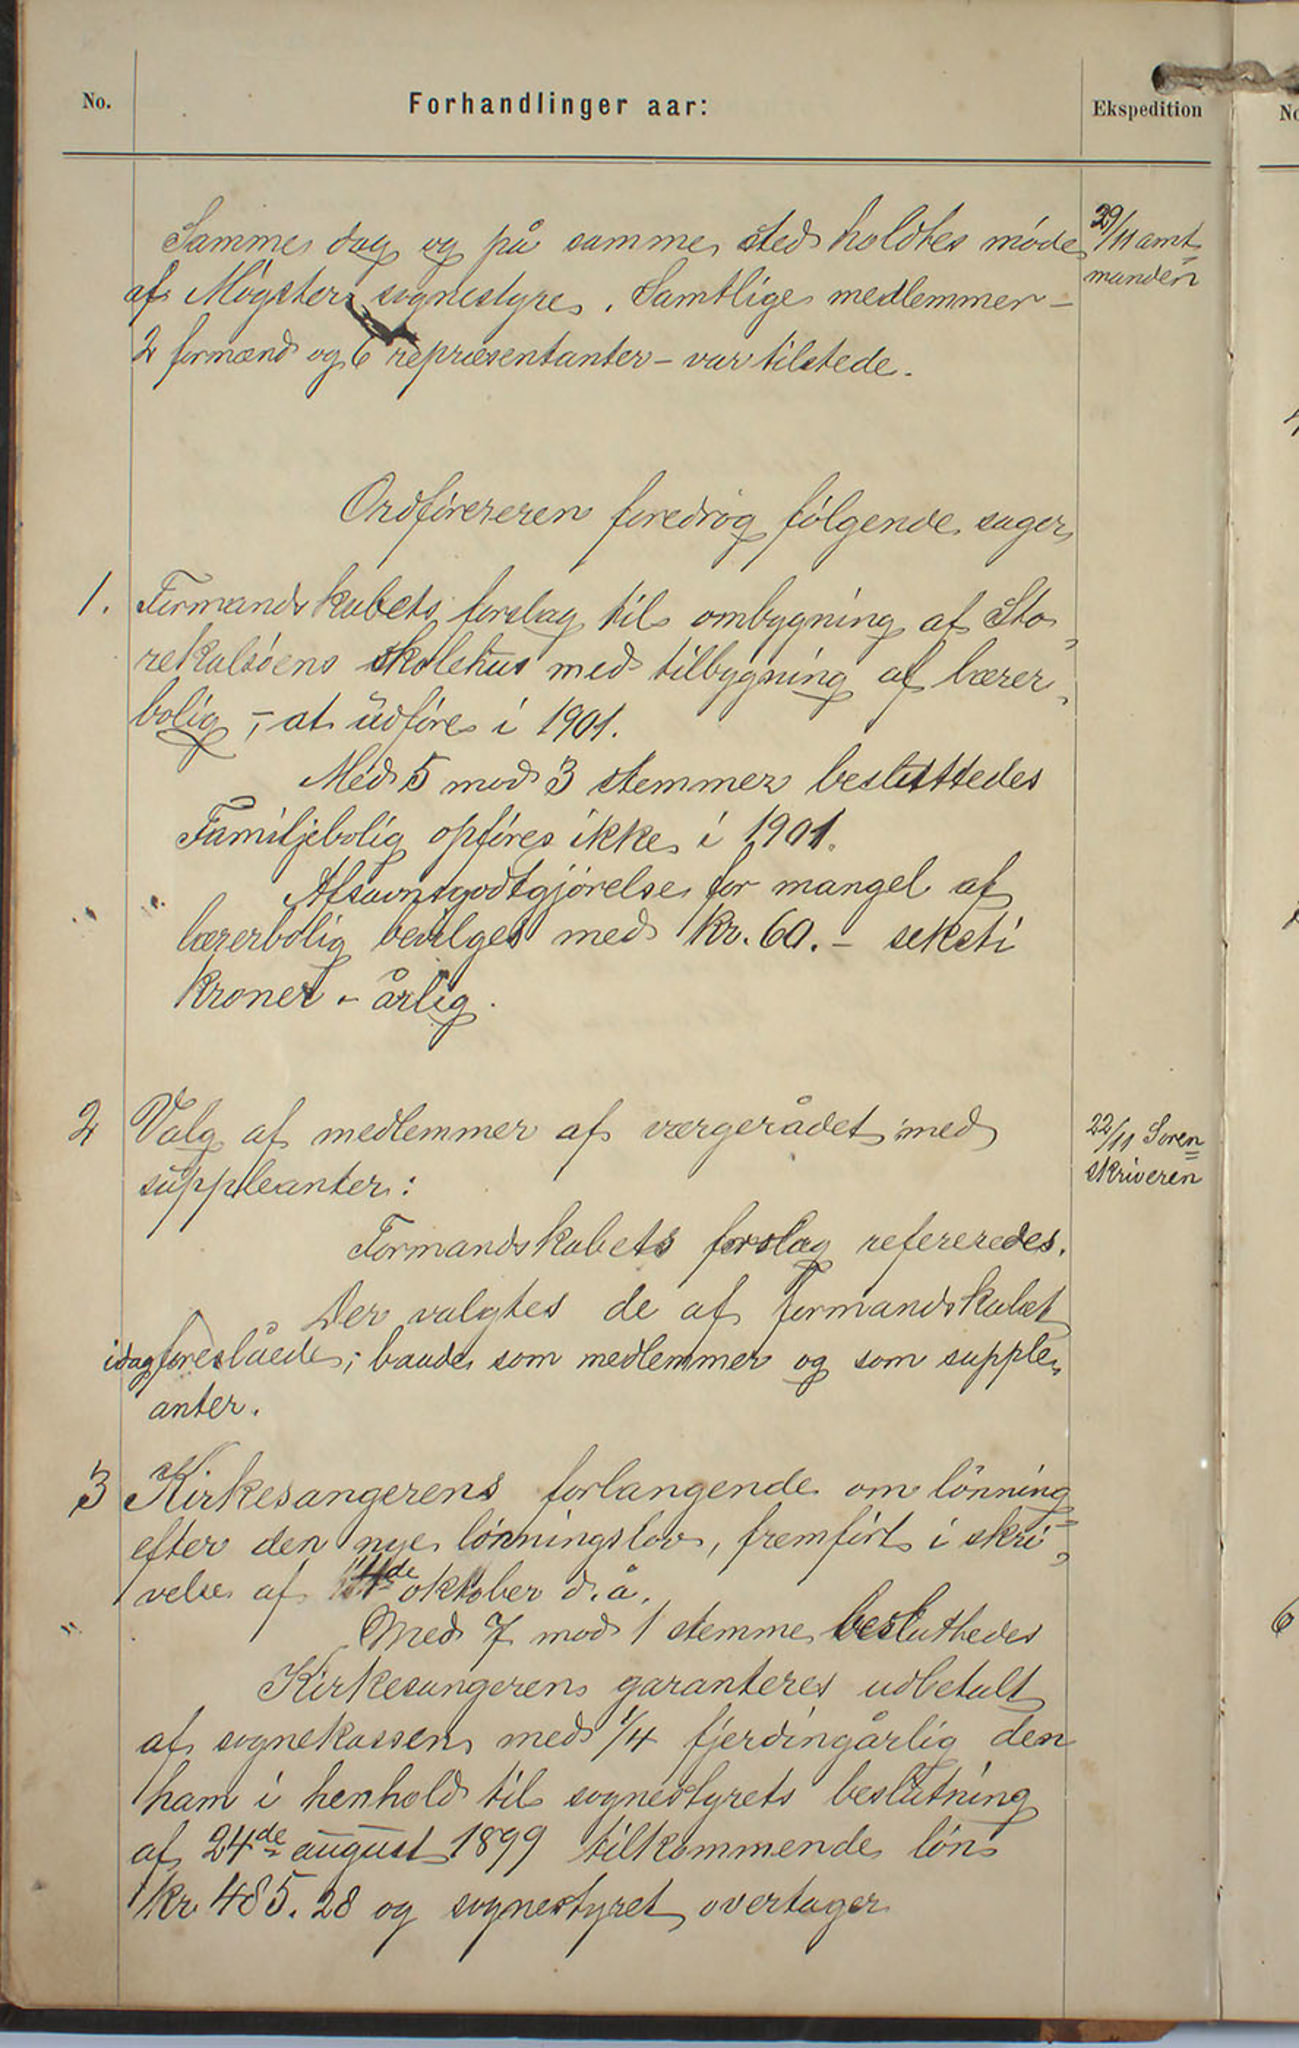 No.
Forhandlinger aar:
Ekspedition
No
Samme dag og på samme sted holdtes møde
af Møgster sognestyre. Samtlige medlemmer –
2 formænd og 6 repræsentanter – var tilstede.
29/11 amt=
manden
Ordføreren foredrog følgende sager
1. Formandskabets forslag til ombygning af Sto,
rekalsøens skolehus med tilbygning af lærer,
bolig, – at udføre i 1901.
Med 5 mod 3 stemmer besluttedes
Familjebolig opføres ikke i 1901.
Afsavnsgodtgjørelse for mangel af
lærerbolig bevilges med kr. 60. – seksti
kroner – årlig.
2 Valg af medlemmer af værgerådet med
suppleanter:
22/11 Soren=
skriveren
Formandskabets forslag refereredes.
Der valgtes de af formandskabet
idag foreslåede; baade som medlemmer og som supple,
anter.
3 Kirkesangerens forlangende om lønning
efter den nye lønningslov, fremført i skri=
velse af 14de oktober d. å.
Med 7 mod 1 stemme besluttedes
Kirkesangeren garanteres udbetalt
af sognekassen med 1/4 fjerdingårlig den
ham i henhold til sognestyrets beslutning
af 24de august 1899 tilkommende løn
kr. 485.28 og sognestyret overtager
6